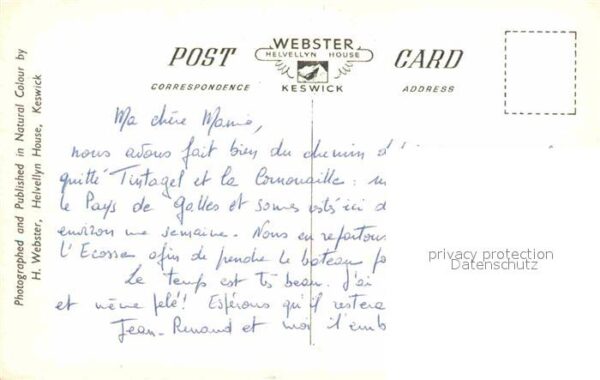 Photographed and Published in Natural Colour by
H. Webster, Helvellyn House, Keswick
POST CARD
WEBSTER
HELVELLYN HOUSE
KESWICK
CORRESPONDENCE
ADDRESS
Ma chère Mamie,
nous avons fait bien du chemin d
quitté Tintagel et la Cornouaille :
le Pays de Galles et sommes restés ici d
environ une semaine. Nous en repartons
l'Ecosse afin de prendre le bateau po
Le temps est très beau. J'ai
et même pelé! Espérons qu'il restera
Jean-Renaud et moi t'emb
privacy protection
Datenschutz